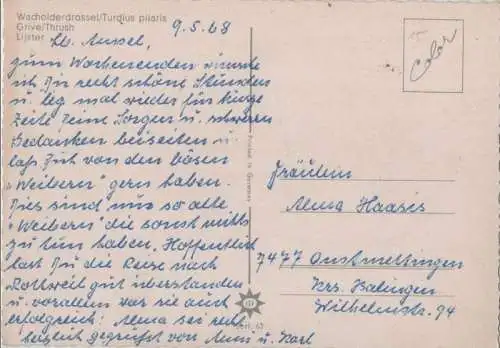 Wacholderdrossel/Turdius pilaris
Grive/Thrush
Lijster
9.5.68
Lb. Amsel,
zum Wochenenden wünsche
ich Dir recht schöne Stunden
u. leg mal wieder für kurze
Zeit Deine Sorgen u. schweren
Gedanken beiseiten u.
laß Dich von den bösen
"Weibern" gern haben.
Dies sind nur so alte
"Weibern" die sonst nichts
zu tun haben. Hoffentlich
hast Du die Reise nach
Rottweil gut überstanden
u. vorallem war sie auch
erfolgreich: Alma sei recht
herzlich gegrüßt von Anni u. Karl
Printed in Germany
Color
Fräulein
Alma Haasis
7477 Onstmettingen
Krs. Balingen
Wilhelmstr. 94